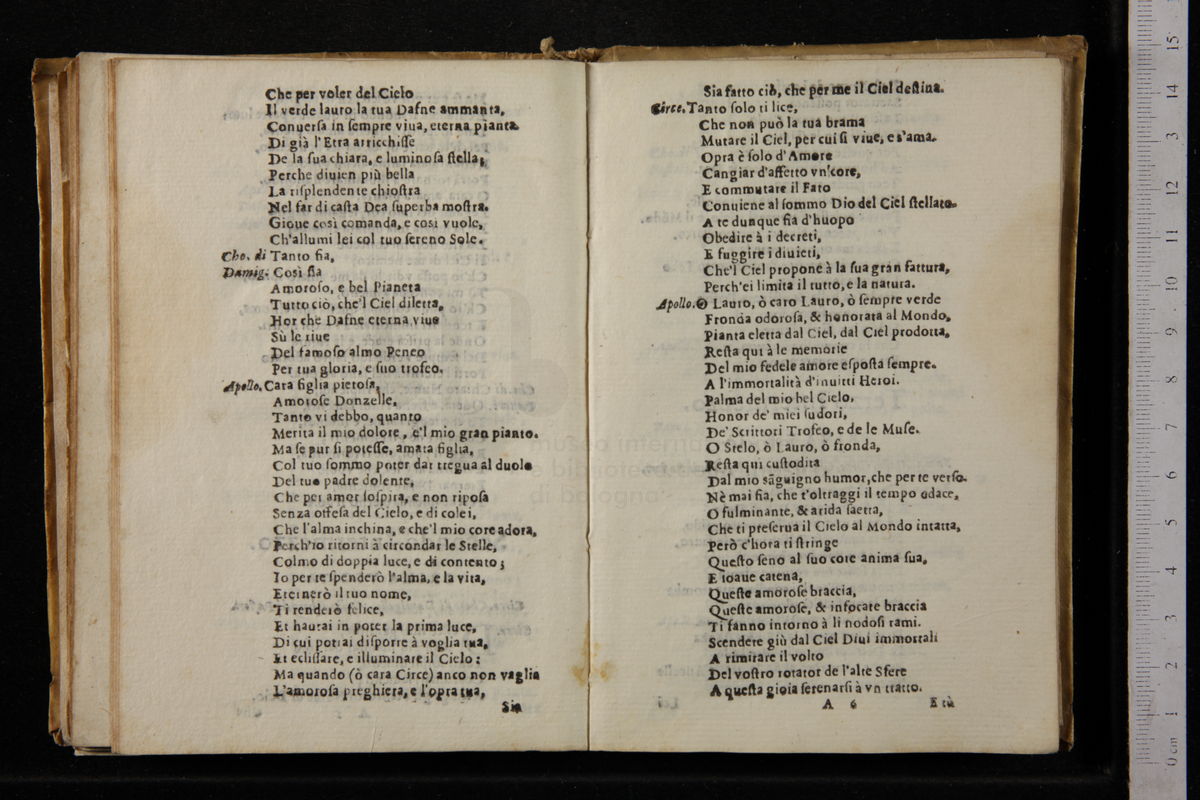 Che per voler del Cielo
Il verde lauro la tua Dafne ammanta,
Conuerſa in ſempre viua, eterna pianta.
Di già l'Etra arricchiſſe
De la ſua chiara, e luminoſa ſtella;
Perche diuien più bella
La riſplendente chioſtra
Nel far di caſta Dea ſuperba moſtra.
Gioue così comanda, e così vuole,
Ch'allumi lei col tuo ſereno Sole.
Cho. di Tanto fia,
Damig. Così fia
Amoroſo, e bel Pianeta
Tutto ciò, che'l Ciel diletta,
Hor che Dafne eterna viue
Sù le riue
Del famoſo almo Peneo
Per tua gloria, e ſuo trofeo.
Apollo. Cara figlia pietoſa,
Amoroſe Donzelle,
Tanto vi debbo, quanto
Merita il mio dolore, e'l mio gran pianto.
Ma ſe pur ſi poteſſe, amata figlia,
Col tuo ſommo poter dar tregua al duolo
Del tuo padre dolente,
Che per amor ſoſpira, e non ripoſa
Senza offeſa del Cielo, e di colei,
Che l'alma inchina, e che'l mio core adora,
Perch'io ritorni à circondar le Stelle,
Colmo di doppia luce, e di contento;
Io per te ſpenderò l'alma, e la vita,
Eternerò il tuo nome,
Ti renderò felice,
Et haurai in poter la prima luce,
Di cui potrai diſporre à voglia tua,
Et ecliſſare, e illuminare il Cielo:
Ma quando (ò cara Circe) anco non vaglia
L'amoroſa preghiera, e l'opra tua,
Sia
Sia fatto ciò, che per me il Ciel deſtina.
Circe. Tanto ſolo ti lice,
Che non può la tua brama
Mutare il Ciel, per cui ſi viue, e s'ama.
Opra è ſolo d'Amore
Cangiar d'affetto vn'core,
E commutare il Fato
Conuiene al ſommo Dio del Ciel ſtellato.
A te dunque fia d'huopo
Obedire à i decreti,
E fuggire i diuieti,
Che'l Ciel propone à la ſua gran fattura,
Perch'ei limita il tutto, e la natura.
Apollo. O Lauro, ò caro Lauro, ò ſempre verde
Fronda odoroſa, & honorata al Mondo,
Pianta eletta dal Ciel, dal Ciel prodotta,
Reſta qui à le memorie
Del mio fedele amore eſpoſta ſempre.
A l'immortalità d'inuitti Heroi.
Palma del mio bel Cielo,
Honor de' miei ſudori,
De' Scrittori Trofeo, e de le Muſe.
O Stelo, ò Lauro, ò fronda,
Reſta qui cuſtodita
Dal mio sãguigno humor, che per te verſo.
Nè mai fia, che t'oltraggi il tempo edace,
O fulminante, & arida ſaetta,
Che ti preſerua il Cielo al Mondo intatta,
Però c'hora ti ſtringe
Queſto ſeno al ſuo core anima ſua,
E ſoaue catena,
Queſte amoroſe braccia,
Queſte amoroſe, & infocate braccia
Ti fanno intorno à li nodoſi rami.
Scendete giù dal Ciel Diui immortali
A rimirare il volto
Del voſtro rotator de l'alte Sfere
A queſta gioia ſerenarſi à vn tratto.
A 6 E tù
museo internazionale
e biblioteca della
di bologna
0 cm 1 2 3 4 5 6 7 8 9 10 11 12 13 14 15